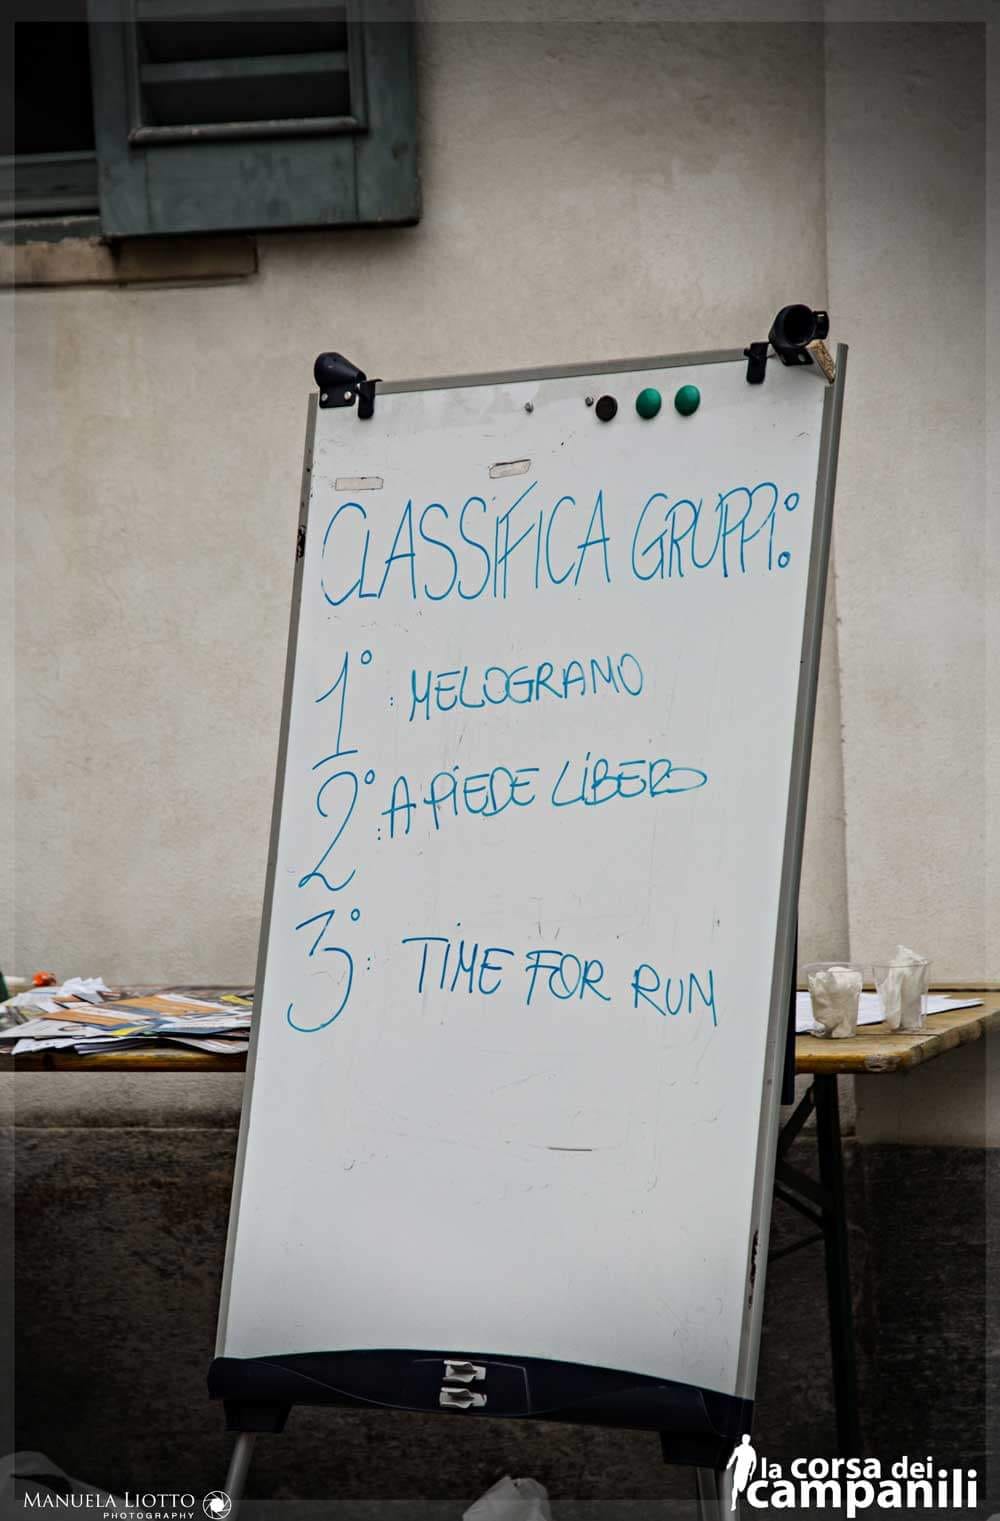 CLASSIFICA GRUPPI:
1° : MELOGRANO
2° : A PIEDE LIBERO
3° : TIME FOR RUN
MANUELA LIOTTO
PHOTOGRAPHY
la corsa dei
campanili